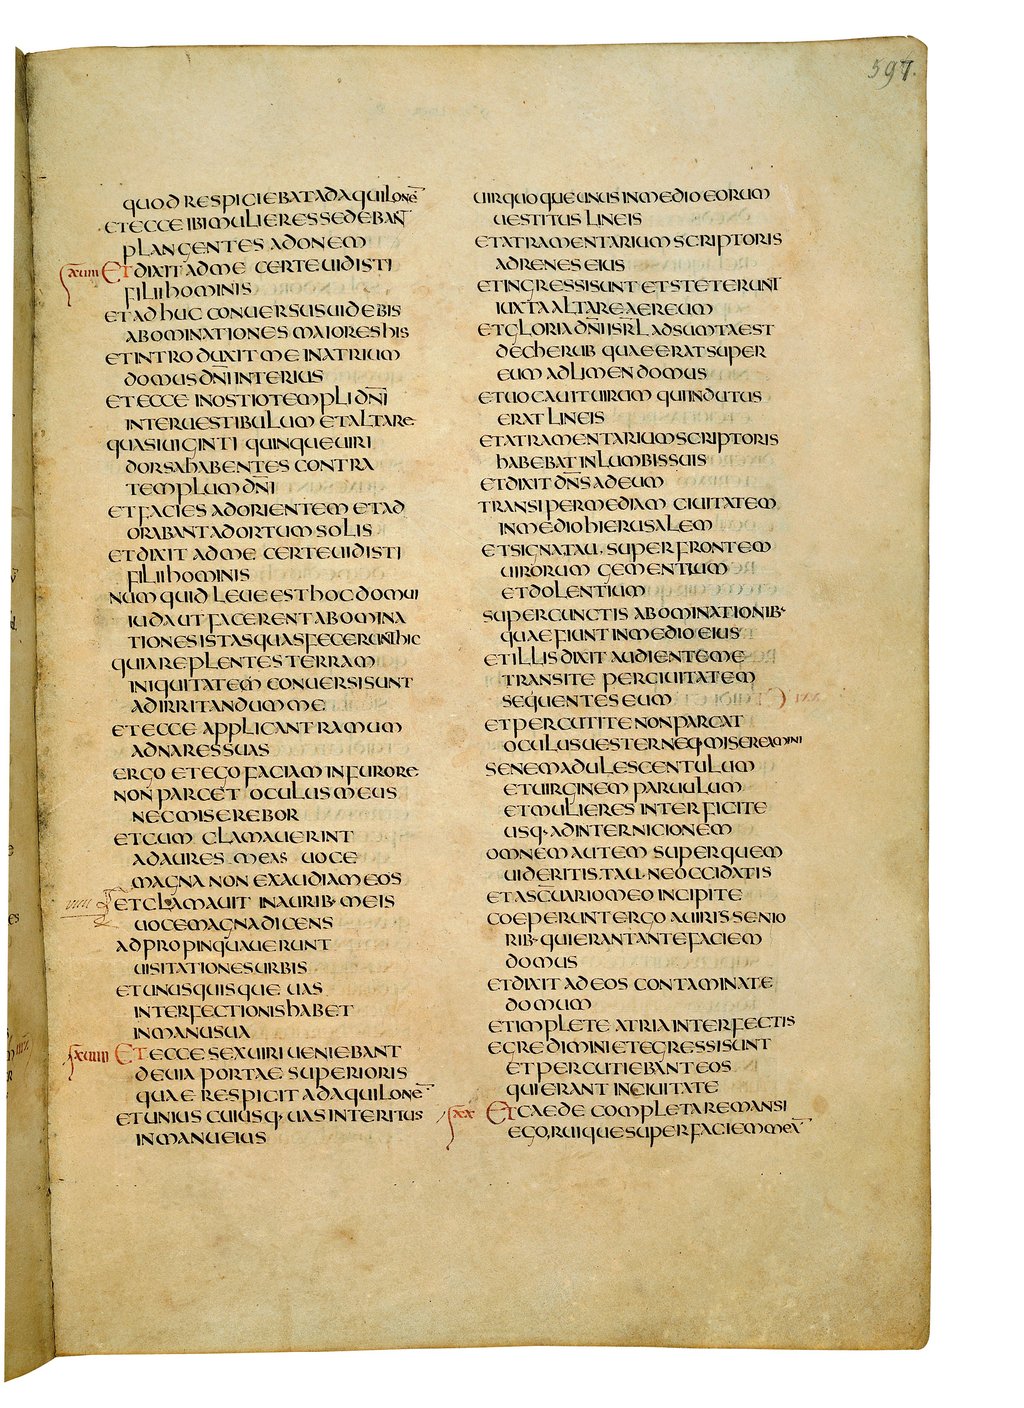 597.
QUOD RESPICIEBAT AD AQUILONĒ
ET ECCE IBI MULIERES SEDEBANT
PLANGENTES ADONEM
XVIII ET DIXIT AD ME CERTE UIDISTI
FILII HOMINIS
ET ADHUC CONUERSUS UIDEBIS
ABOMINATIONES MAIORES HIS
ET INTRODUXIT ME IN ATRIUM
DOMUS DN̄I INTERIUS
ET ECCE IN OSTIO TEMPLI DN̄I
INTER UESTIBULUM ET ALTARE
QUASI UIGINTI QUINQUE UIRI
DORSA HABENTES CONTRA
TEMPLUM DN̄I
ET FACIES AD ORIENTEM ET AD
ORABANT AD ORTUM SOLIS
ET DIXIT AD ME CERTE UIDISTI
FILII HOMINIS
NUMQUID LEUE EST HOC DOMUI
IUDA UT FACERENT ABOMINA
TIONES ISTAS QUAS FECERUNT HIC
QUIA REPLENTES TERRAM
INIQUITATEM CONUERSI SUNT
AD IRRITANDUM ME
ET ECCE APPLICANT RAMUM
AD NARES SUAS
ERGO ET EGO FACIAM IN FURORE
NON PARCET OCULUS MEUS
NEC MISEREBOR
ET CUM CLAMAUERINT
AD AURES MEAS UOCE
MAGNA NON EXAUDIAM EOS
ET CLAMAUIT IN AURIB· MEIS
UOCE MAGNA DICENS
ADPROPINQUAUERUNT
UISITATIONES URBIS
ET UNUSQUISQUE UAS
INTERFECTIONIS HABET
IN MANU SUA
XVIIII ET ECCE SEX UIRI UENIEBANT
DE UIA PORTAE SUPERIORIS
QUAE RESPICIT AD AQUILONĒ
ET UNIUSCUIUSQ· UAS INTERITUS
IN MANU EIUS
UIR QUOQUE UNUS IN MEDIO EORUM
UESTITUS LINEIS
ET ATRAMENTARIUM SCRIPTORIS
AD RENES EIUS
ET INGRESSI SUNT ET STETERUNT
IUXTA ALTARE AEREUM
ET GLORIA DN̄I ISRL̄ ADSUMTA EST
DE CHERUB QUAE ERAT SUPER
EUM AD LIMEN DOMUS
ET UOCAUIT UIRUM QUI INDUTUS
ERAT LINEIS
ET ATRAMENTARIUM SCRIPTORIS
HABEBAT IN LUMBIS SUIS
ET DIXIT DN̄S AD EUM
TRANSI PER MEDIAM CIUITATEM
IN MEDIO HIERUSALEM
ET SIGNA TAU· SUPER FRONTEM
UIRORUM GEMENTIUM
ET DOLENTIUM
SUPER CUNCTIS ABOMINATIONIB·
QUAE FIUNT IN MEDIO EIUS
ET ILLIS DIXIT AUDIENTE ME
TRANSITE PER CIUITATEM
SEQUENTES EUM
ET PERCUTITE NON PARCAT
OCULUS UESTER NEQ· MISEREAMINI
SENEM ADULESCENTULUM
ET UIRGINEM PARUULUM
ET MULIERES INTERFICITE
USQ· AD INTERNICIONEM
OMNEM AUTEM SUPER QUEM
UIDERITIS ·TAU· NE OCCIDATIS
ET A SC̄UARIO MEO INCIPITE
COEPERUNT ERGO A UIRIS SENIO
RIB· QUI ERANT ANTE FACIEM
DOMUS
ET DIXIT AD EOS CONTAMINATE
DOMUM
ET IMPLETE ATRIA INTERFECTIS
EGREDIMINI ET EGRESSI SUNT
ET PERCUTIEBANT EOS
QUI ERANT IN CIUITATE
XX ET CAEDE COMPLETA REMANSI
EGO, RUIQUE SUPER FACIEM MEĀ